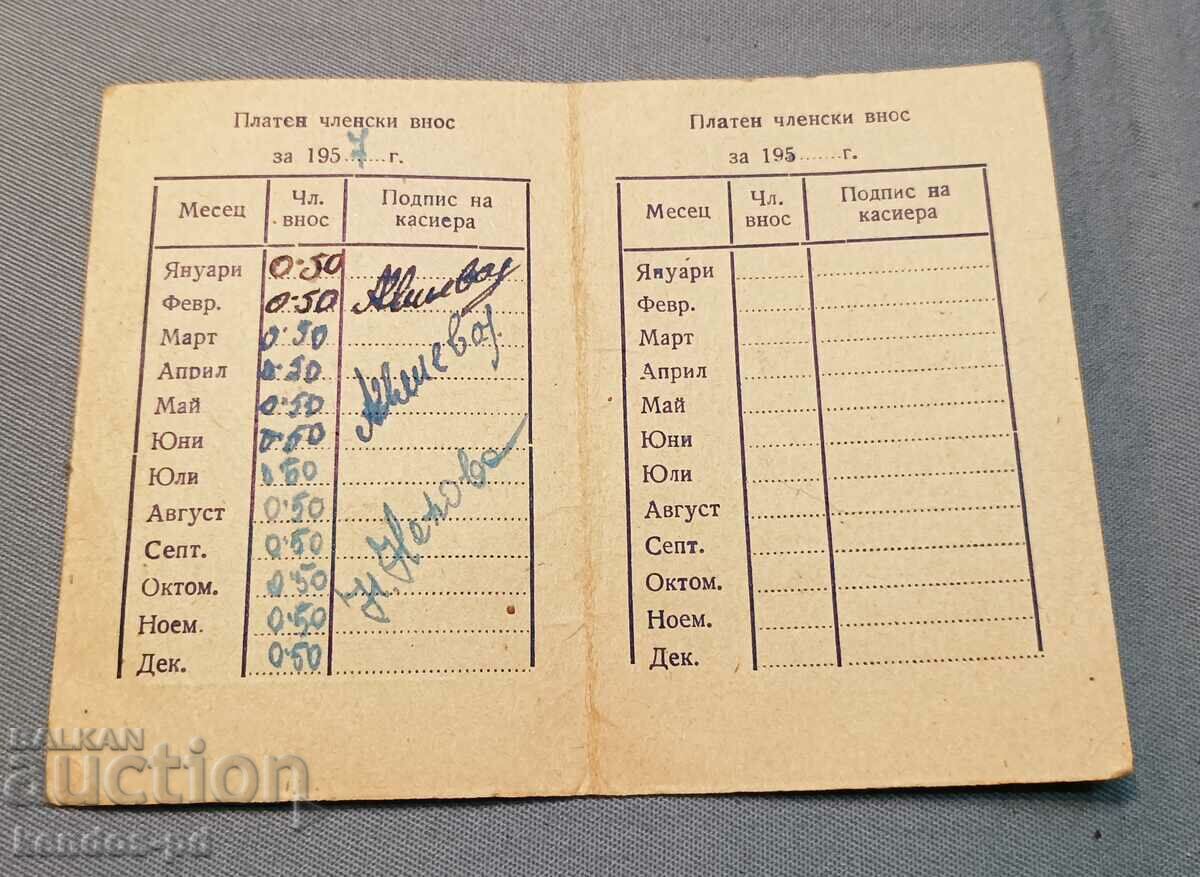 Платен членски внос
за 1957 г.
Месец Чл. внос Подпис на касиера
Януари 0.50
Февр. 0.50
Март 0.50
Април 0.50
Май 0.50
Юни 0.50
Юли 0.50
Август 0.50
Септ. 0.50
Октом. 0.50
Ноем. 0.50
Дек. 0.50
Платен членски внос
за 195......г.
Месец Чл. внос Подпис на касиера
Януари
Февр.
Март
Април
Май
Юни
Юли
Август
Септ.
Октом.
Ноем.
Дек.
BALKAN
auction
kendos-pd